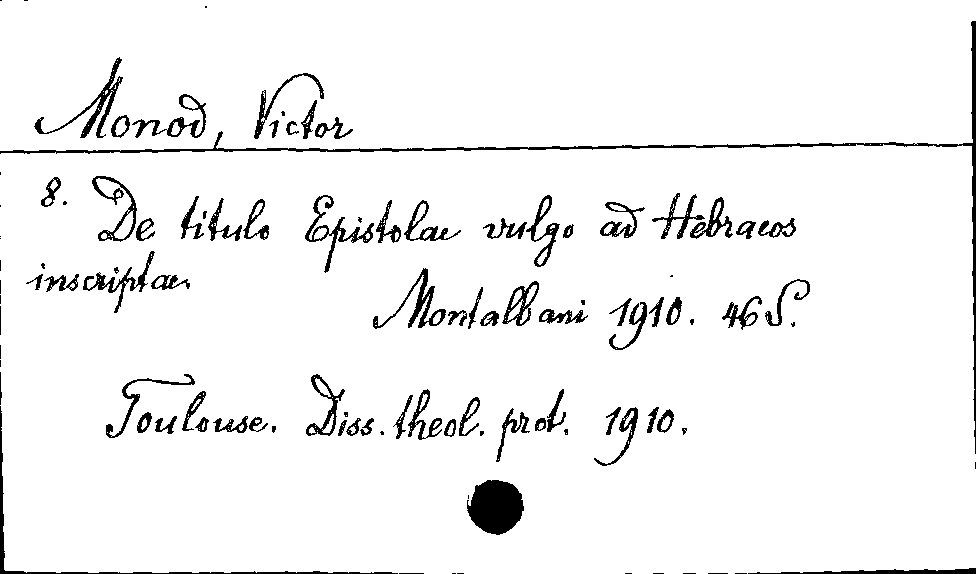 Monod, Victor
8. De titulo Epistolae vulgo ad Hebraeos
inscriptae.
Montalbani 1910. 46 S.
Toulouse. Diss. theol. prot. 1910.